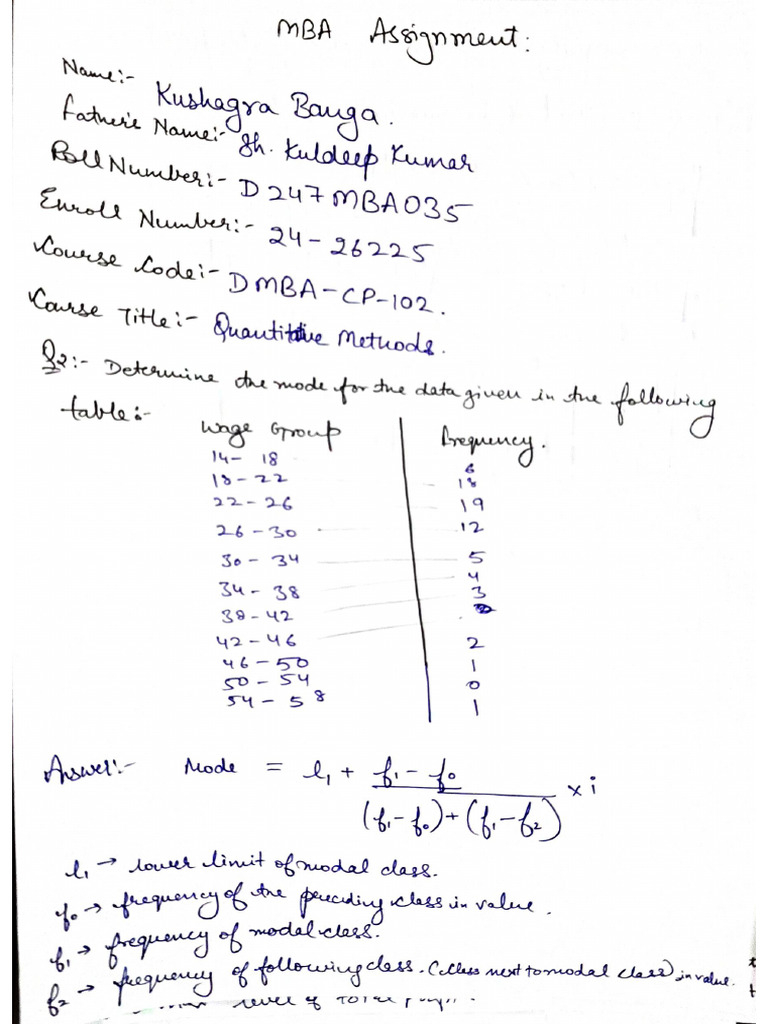 MBA Assignment:
Name:- Kushagra Banga.
Father's Name:- Sh. Kuldeep Kumar
Roll Number:- D247MBA035
Enroll Number:- 24-26225
Course Code:- DMBA-CP-102.
Course Title:- Quantitative Methods.
Q2:- Determine the mode for the data given in the following
table:-
Wage Group Frequency.
14- 18 6
18-22 18
22-26 19
26-30 12
30- 34 5
34- 38 4
38-42 3
42-46 2
46-50 1
50-54 0
54-58 1
Answer:- Mode = l₁ + f₁ - f₀
(f₁-f₀)+(f₁-f₂) × i
l₁ → lower limit of modal class.
f₀ → frequency of the preciding class in value.
f₁ → frequency of modal class.
f₂ → frequency of following class. (class next to modal class) in value.